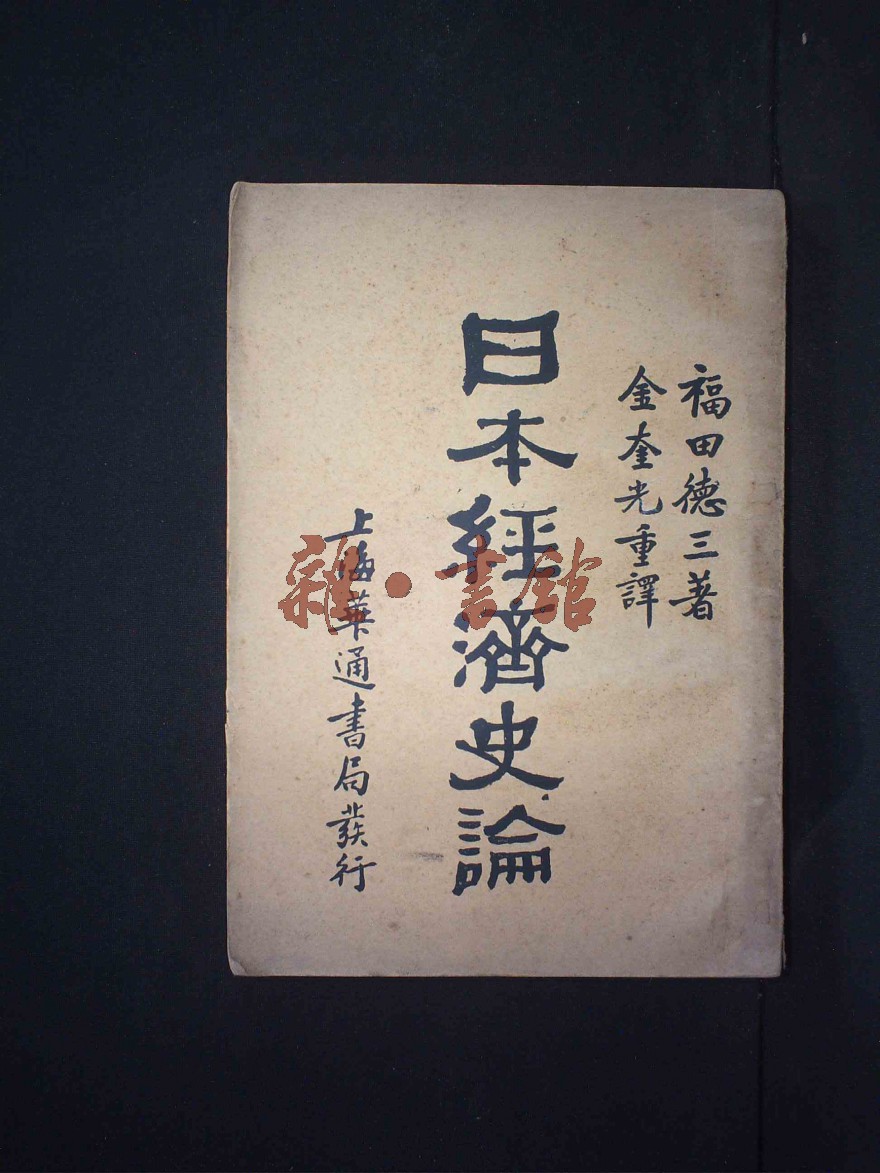 福田德三著
金奎光重譯
日本經濟史論
上海華通書局發行
雜·書館